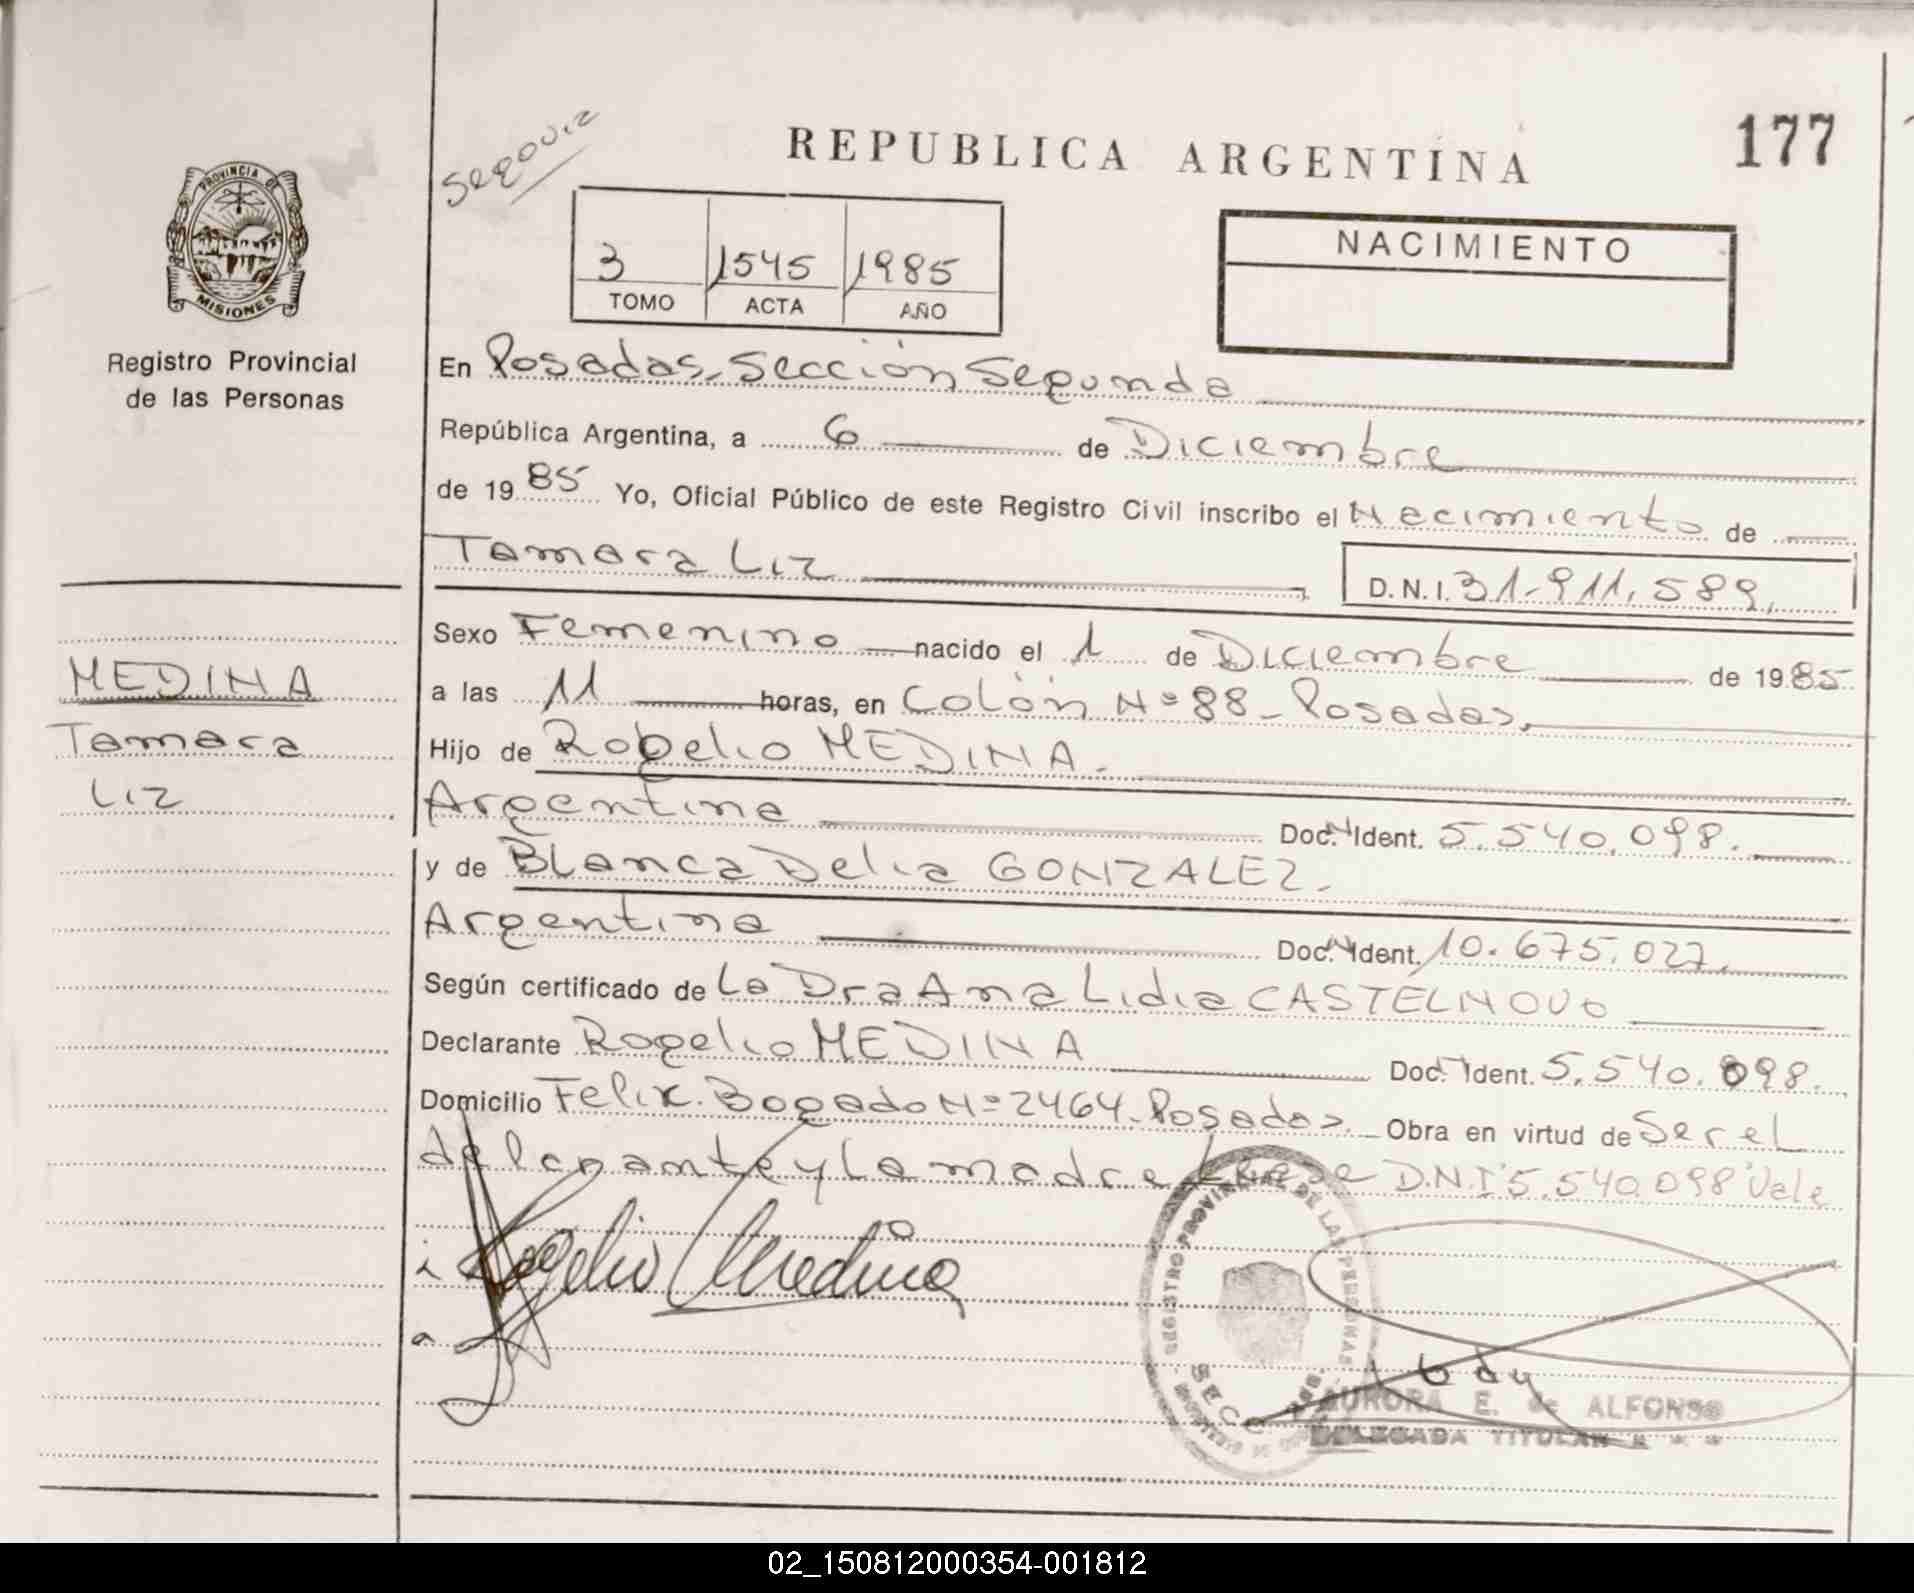 177
REPUBLICA ARGENTINA
PROVINCIA DE
MISIONES
Registro Provincial
de las Personas
3 1545 1985
TOMO ACTA AÑO
NACIMIENTO
En Posadas, Sección Segunda
República Argentina, a 6 de Diciembre
de 1985 Yo, Oficial Público de este Registro Civil inscribo el Nacimiento de
Tamara Liz D.N.I. 31.911.589,
Sexo Femenino nacido el 1 de Diciembre de 1985
a las 11 horas, en Colón Nº 88 - Posadas,
Hijo de Rogelio MEDINA.
Argentina Doc. N Ident. 5.540.098.
y de Blanca Delia GONZALEZ.
Argentina Doc. N Ident. 10.675.027,
Según certificado de La Dra Ana Lidia CASTELNOVO
Declarante Rogelio MEDINA Doc. Ident. 5.540.098.
Domicilio Felix Bogado Nº 2464 - Posadas. Obra en virtud de Ser el
y La madre D.N.I 5.540.098 Vale
Rogelio Medina
MEDINA
Tamara
Liz
REGISTRO PROVINCIAL DE LAS PERSONAS
SECC
AURORA E. de ALFONSO
DELEGADA TITULAR
02_150812000354-001812